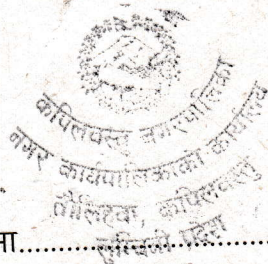 कपिलवस्तु नगरपालिका
नगर कार्यपालिकाको कार्यालय
तौलिहवा, कपिलवस्तु
लुम्बिनी प्रदेश
मा